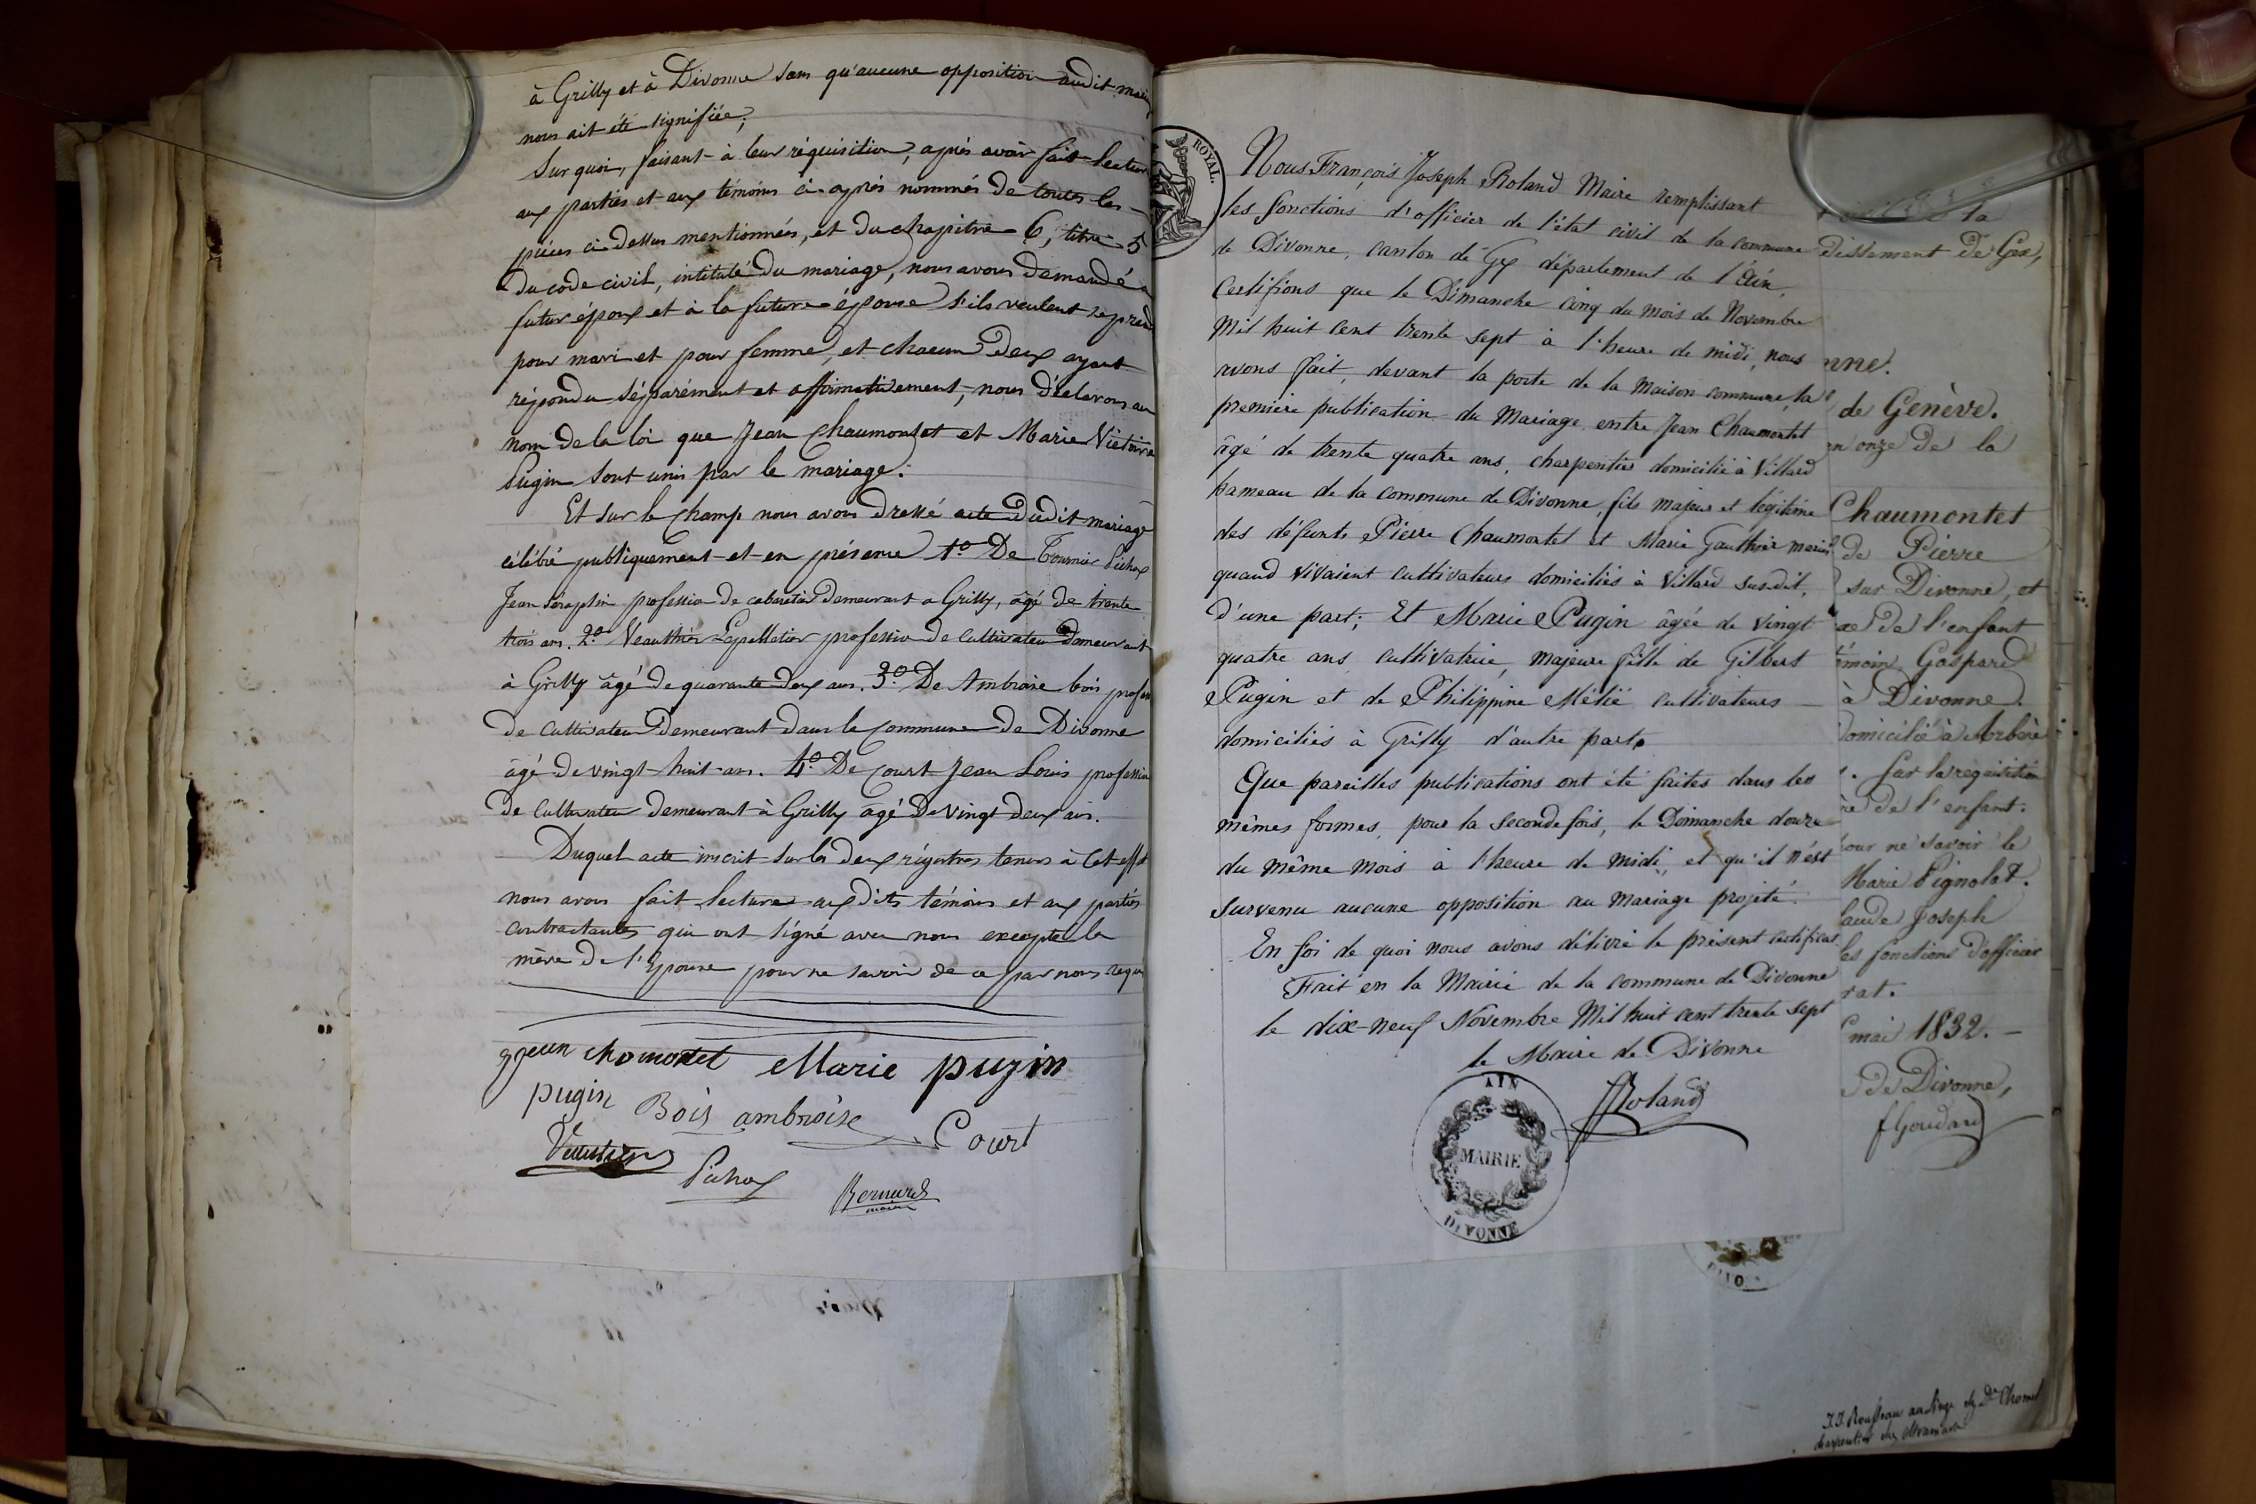 à Grilly et à Divonne sans qu'aucune opposition audit
nous ait été signifiée,
Sur quoi, faisant à leur réquisition, après avoir fait lecture
aux parties et aux témoins ci-après nommés de toutes les
pièces ci-dessus mentionnées, et du chapitre 6, titre 5
du code civil, intitulé du mariage, nous avons demandé
futur époux et à la future épouse s'ils veulent se prend
pour mari et pour femme, et chacun deux ayant
répondu séparément et affirmativement, nous déclarons au
nom de la loi que Jean Chaumontet et Marie Victoire
Pugin sont unis par le mariage.
Et sur le champ nous avons dressé acte dudit mariage
célébré publiquement et en présence 1º De Tournier Pichoux
Jean Séraphin profession de cabaretier demeurant a Grilly, âgé de trente
trois ans. 2º Veauthier profession de cultivateur demeurant
à Grilly âgé de quarante deux ans. 3º De Ambroise bois profes
de cultivateur demeurant dans la commune de Divonne
âgé de vingt-huit ans. 4º De Court Jean Louis profession
de cultivateur demeurant à Grilly âgé de vingt deux ans.
Duquel acte inscrit sur les deux régistres tenus à cet eff
nous avons fait lecture aux dits témoins et aux parties
contractantes qui ont signé avec nous excepté la
mère de l'épouse pour ne savoir de ce par nous requ
Jean chomontet Marie pugin
pugin Bois ambroise Court
Pichoux Bernard
maire
ROYAL.
Nous François Joseph Roland Maire remplissant
les fonctions d'officier de l'état civil de la commune
de Divonne, canton de Gex département de l'Ain,
Certifions que le Dimanche cinq du mois de Novembre
Mil huit cent trente sept à l'heure de midi, nous
avons fait, devant la porte de la maison commune, la
première publication du Mariage entre Jean Chaumontet
âgé de trente quatre ans, charpentier domicilié à Villard
hameau de la commune de Divonne, fils majeur et légitime
des défunts Pierre Chaumontet et Marie Gauthier mariés
quand vivaient cultivateurs domiciliés à Villard susdit,
d'une part; Et Marie Pugin âgée de vingt
quatre ans, cultivatrice, majeure fille de Gilbert
Pugin et de Philippine Métié cultivateurs
domiciliés à Grilly d'autre part.
Que pareilles publications ont été faites dans les
mêmes formes, pour la seconde fois, le Dimanche douze
du même mois à l'heure de midi, et qu'il n'est
survenu aucune opposition au mariage projeté.
En foi de quoi nous avons délivré le présent certificat.
Fait en la Mairie de la commune de Divonne
le dix-neuf Novembre Mil huit cent trente sept
le Maire de Divonne
Roland
AIN
MAIRIE
DIVONNE
la
dissement de Gex,
nne.
de Genève.
n onze de la
Chaumontet
de Pierre
sur Divonne, et
de l'enfant
témoin Gaspard
à Divonne.
domicilié à Arbère
. Sur la réquisition
re de l'enfant.
pour ne savoir le
Marie Pignolat.
laude Joseph
les fonctions d'officier
rat.
mai 1832.
de Divonne,
Goudard
DIVO
J.J. Rousseau au linge